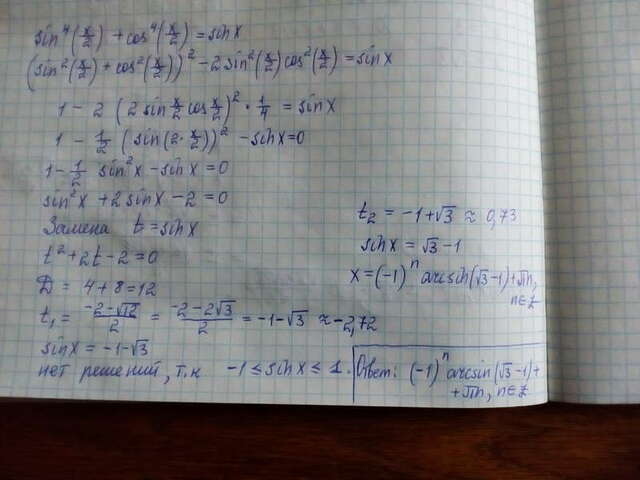 sin⁴(x/2) + cos⁴(x/2) = sinx
(sin²(x/2) + cos²(x/2))² - 2sin²(x/2)cos²(x/2) = sinx
1 - 2 (2 sin x/2 cos x/2)² · 1/4 = sinx
1 - 1/2 (sin(2 · x/2))² - sinx = 0
1 - 1/2 sin²x - sinx = 0
sin²x + 2 sinx - 2 = 0
Замена t = sinx
t² + 2t - 2 = 0
D = 4 + 8 = 12
t₁ = (-2 - √12)/2 = (-2 - 2√3)/2 = -1 - √3 ≈ -2,72
sinx = -1 - √3
нет решений, т.к -1 ≤ sinx ≤ 1.
t₂ = -1 + √3 ≈ 0,73
sinx = √3 - 1
x = (-1)ⁿ arcsin(√3 - 1) + πn,
n∈Z
Ответ: (-1)ⁿ arcsin(√3 - 1) +
+ πn, n∈Z